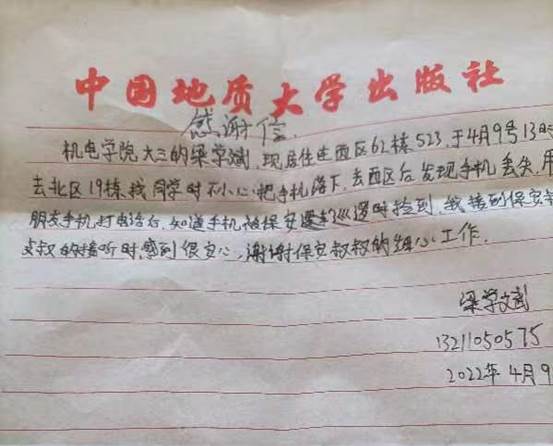 中国地质大学出版社
感谢信
机电学院大三的梁学斌,现居住在西区62栋523,于4月9号13时
去北区19栋找同学时不小心把手机落下,去西区后发现手机丢失,用
朋友手机打电话后,知道手机被保安巡逻时捡到,我接到保安叔
叔的接听时,感到很安心,谢谢保安叔叔的细心工作.
梁学斌
13211050575
2022年4月9